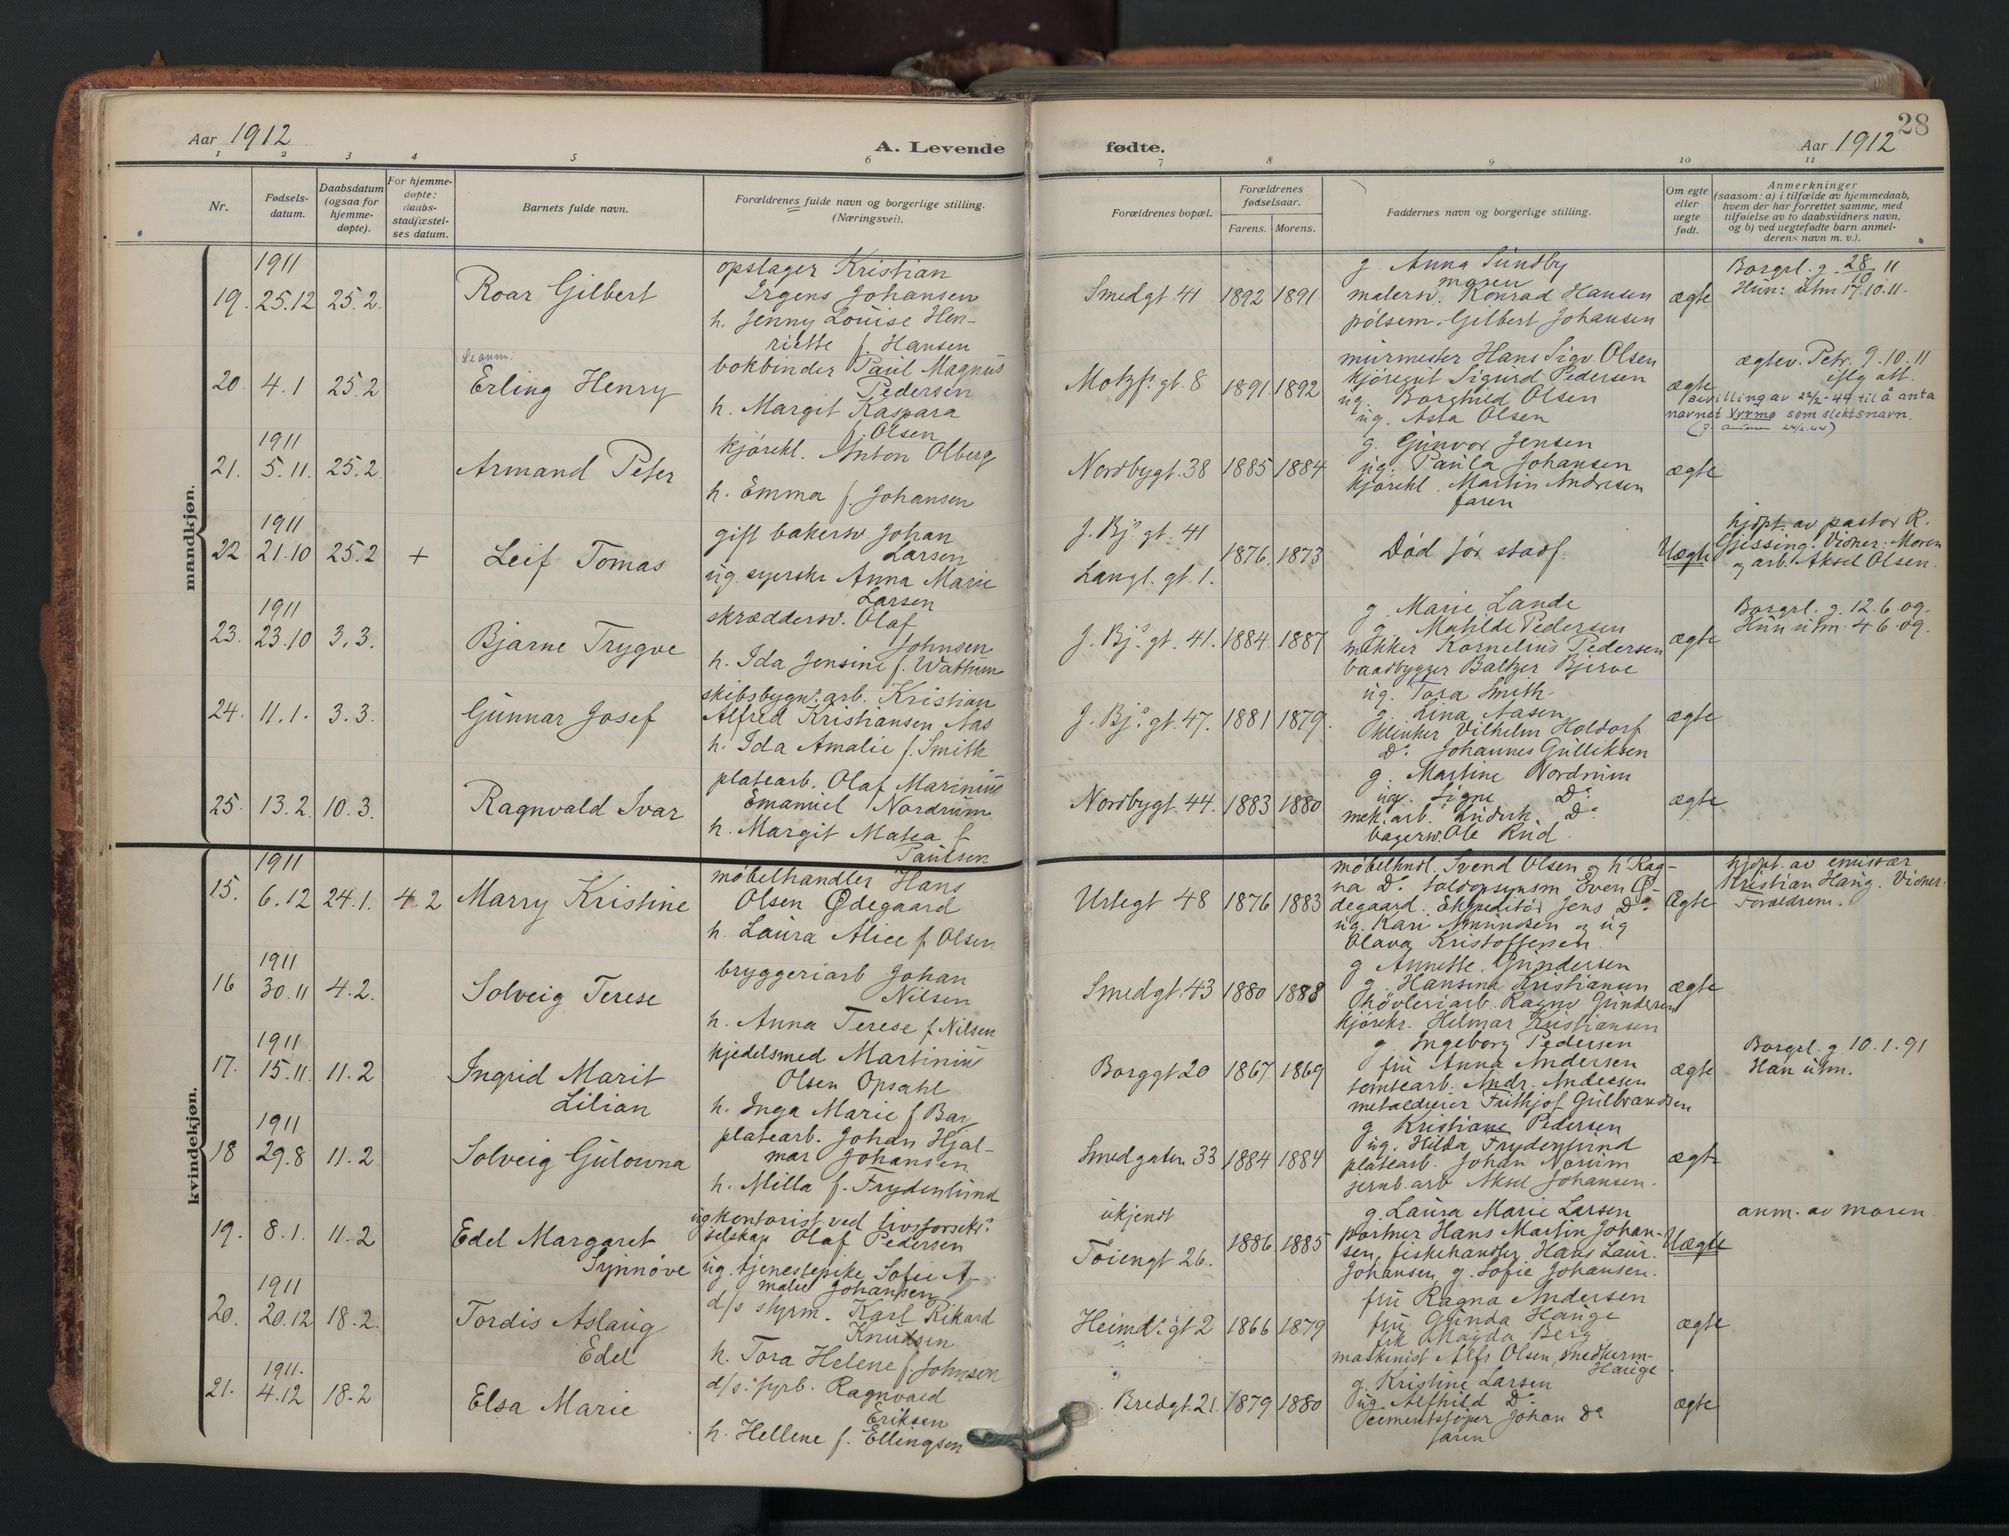 Aar 1912
A. Levende
fødte.
Aar 1912
28
1 2 3 4 5 6 7 8 9 10 11
Nr.
Fødsels-
datum.
Daabsdatum
(ogsaa for
hjemme-
døpte).
For hjemme-
døpte:
daabs-
stadfæstel-
ses datum.
Barnets fulde navn.
Forældrenes fulde navn og borgerlige stilling.
(Næringsvei).
Forældrenes bopæl.
Forældrenes
fødselsaar.
Farens. Morens.
Faddernes navn og borgerlige stilling.
Om egte
eller
uegte
født.
Anmerkninger
(saasom: a) i tilfælde av hjemmedaab,
hvem der har forrettet samme, med
tilføielse av to daabsvidners navn,
og b) ved uegtefødte barn anmel-
derens navn m. v.).
mandkjøn.
1911
19. 25.12 25.2.
Roar Gilbert
opslager Kristian
Irgens Johansen
h. Jenny Louise Hen-
riette f. Hansen
Smedgt. 41 1892 1891
g. Anna Sundby
moren
malersv. Konrad Hansen
pølsem. Gilbert Johansen
ægte
Borgrl. g. 28/10 11
Hun: utm 17.10.11.
20. 4.1 25.2
Erling Henry
bokbinder Paul Magnus
Pedersen
h. Margit Kaspara
f. Olsen
Motzf. gt. 8 1891. 1892
murmester Hans Sigv. Olsen
kjøregut Sigurd Pedersen
ug. Borghild Olsen
ug. Asta Olsen
ægte
ægtev. Petr. 9.10.11
iflg att.
bevilling av 22/2-44 til å anta
navnet Vyrmo som slektsnavn.
1911
21. 5.11. 25.2.
Armand Peter
kjørekl. Anton Olberg
h. Emma f. Johansen
Nordbygt. 38 1885 1884
g. Gunvor Jensen
ug. Paula Johansen
kjørekl. Martin Andresen
faren
ægte
1911
22 21.10 25.2 +
Leif Tomas
gift bakersv Johan
Larsen
ug. syerske Anna Marie
Larsen
J. Bj.s gt. 41
Langl. gt. 1.
1876. 1873
Død før stadf.
Uægte
hjdpt. av pastor R.
Gjessing. Vidner: Moren
og arb. Aksel Olsen.
1911
23. 23.10 3.3.
Bjarne Trygve
skræddersv. Olaf
Johnsen
h. Ida Jensine f. Wattum
J. Bj.s gt. 41. 1884. 1887
g. Marie Lande
g. Matilde Pedersen
mekker Kornelius Pedersen
baadbygger Baltzer Bjerve
ægte
Borgrl. g. 12.6.09.
Hun utm. 4.6.09.
24. 11.1. 3.3.
Gunnar Josef
skibsbygn. arb. Kristian
Alfred Kristiansen Aas
h. Ida Amalie f. Smith
J. Bj.s gt. 47. 1881 1879.
ug. Tora Smith.
g. Lina Aasen
klinker Vilhelm Holdorf
Do. Johannes Gulliksen
ægte
25. 13.2. 10.3.
Ragnvald Ivar
platearb. Olaf Marinius
Emanuel Nordrum
h. Margit Matea f
Paulsen
Nordbygt. 44. 1883 1880
g. Martine Nordrum
ug. Signe Do
mek. arb. Do
bagersv. Ole Rud.
ægte
kvindekjøn.
1911
15. 6.12 24.1. 4.2
Marry Kristine
møbelhandler Hans
Olsen Ødegaard
h. Laura Alice f. Olsen
Urtegt 48 1876 1883
møbelhndl. Svend Olsen og h. Rag-
na Do. toldopsynsm Even Ø-
degaard. Ekspeditør Jens Do
ug. Kari Amundsen og ug
Olava Kristoffersen.
Ægte
hjdpt. av emissær
Kristian Haug. Vidner:
Forældrene.
1911
16 30.11 4.2.
Solveig Terese
bryggeriarb Johan
Nilsen
h. Anna Terese f Nilsen
Smedgt. 43 1880 1888
g Annette Gundersen
g. Hansine Kristiansen
høvleriarb. Ragnv Gundersen
kjørekr. Hilmar Kristiansen
ægte
1911
17. 15.11. 11.2
Ingrid Marit
Lilian
kjedelsmed Martinius
Olsen Opsahl
h. Inga Marie f Bay
Borggt 20 1867. 1869
g. Ingeborg Pedersen
fru Anna Andersen
tomtearb. Andr. Andersen
metaldreier Frithjof Gulbrandsen
ægte
Borgrl. g 10.1.91
Han utm.
1911
18 29.8 11.2
Solveig Gulowna
platearb. Johan Hjal-
mar Johansen
h. Milla f. Frydenlund
Smedgaten 33 1884 1884
g Kristiane Pedersen
ug. Hilda Frydenlund
platearb. Johan Norum
jernb. arb Aksel Johansen.
ægte
19. 8.1. 11.2
Edel Margaret
Synnøve
ug kontorist ved livsforsikr.
selskap Olaf Pedersen
ug. tjenestepike Sofie A-
malie Johansen
ukjendt
Tøiengt 26.
1886 1885
g. Laura Marie Larsen
portner Hans Martin Johan-
sen, fiskehandler Hans Laur.
Johansen, g. Sofie Johansen.
Uægte
anm. av moren.
1911
20. 20.12 18.2.
Tordis Aslaug
Edel
d/s styrm. Karl Rikard
Knudsen
h. Tora Helene f. Johnsen
Heimd.s gt 2 1866 1879
fru Ragna Andersen
fru Gunda Hauge
frk Magda Berg
maskinist Alfr Olsen, smedkerm-
Hauge.
ægte
1911.
21. 4.12 18.2
Elsa Marie
d/s. fyrb. Ragnvald
Eriksen
h. Hellene f. Ellingsen
Bredgt 21. 1879 1880
g. Kristine Larsen
ug. Alfhild Do
cementstøper Johan Do
faren
ægte